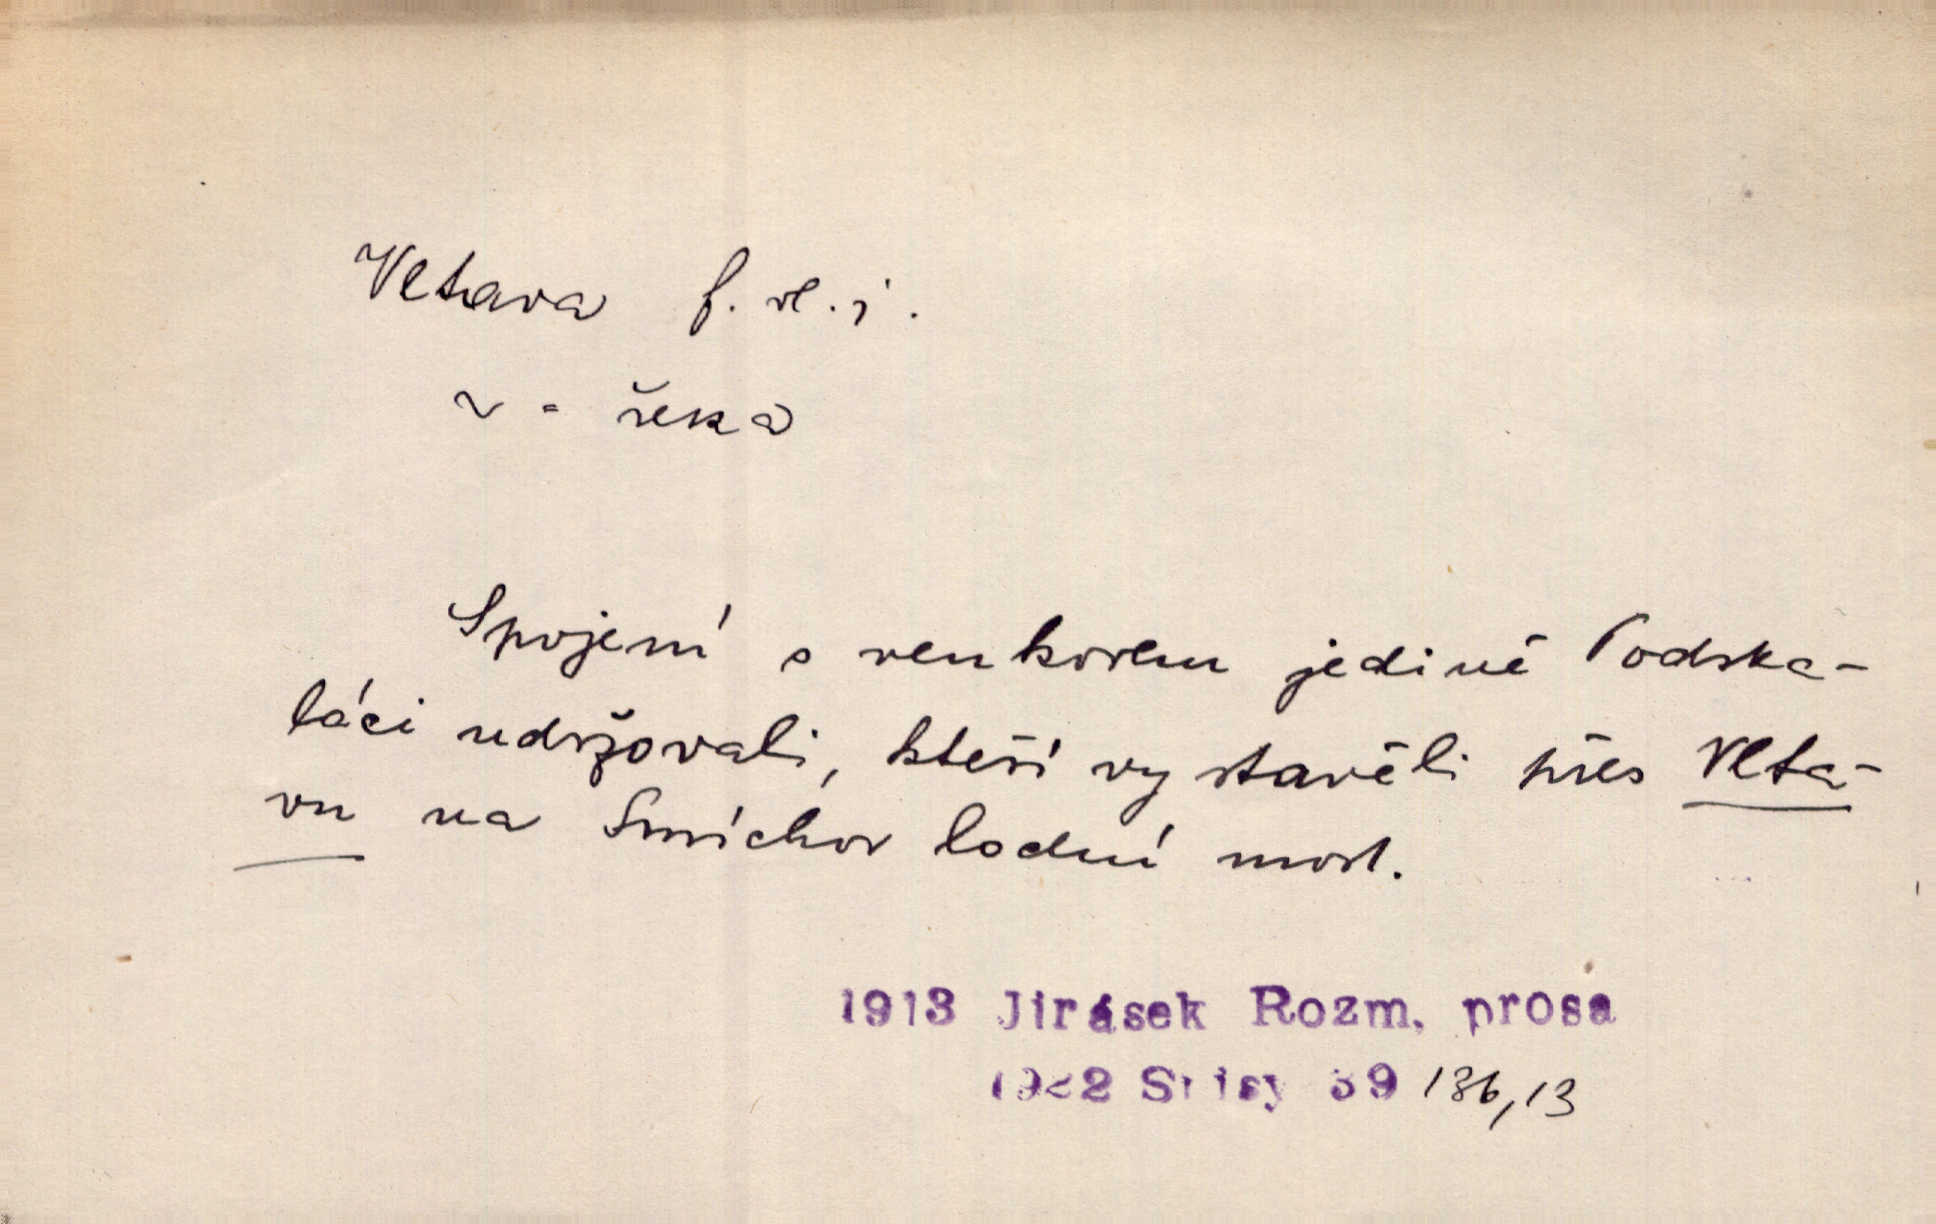 Vltava f. vl. j.
~ = řeka
Spojení s venkovem jedině Podska-
láci udržovali, kteří vystavěli přes Vlta-
vu na Smíchov lodní most.
1913 Jirásek Rozm. prosa
1922 Spisy 39 136,13